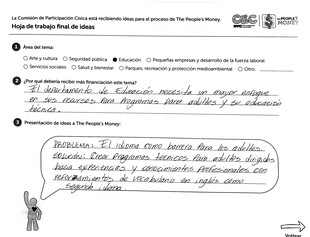 La Comisión de Participación Cívica está recibiendo ideas para el proceso de The People's Money.
Hoja de trabajo final de ideas
CEC
NYC
THE PEOPLE'S MONEY
1 Área del tema:
Arte y cultura Seguridad pública Educación Pequeñas empresas y desarrollo de la fuerza laboral
Servicios sociales Salud y bienestar Parques, recreación y protección medioambiental Otro:
2 ¿Por qué debería recibir más financiación este tema?
El departamento de Educación necesita un mayor enfoque
en sus recursos para Programas para adultos y su educación
técnica.
3 Presentación de ideas a The People's Money:
PROBLEMA: El idioma como barrera para los adultos
SOLUCIÓN: Crear Programas técnicos para adultos dirigidos
hacia experiencias y conocimientos profesionales con
reforzamientos de vocabulario en inglés como
segundo idioma
Voltear